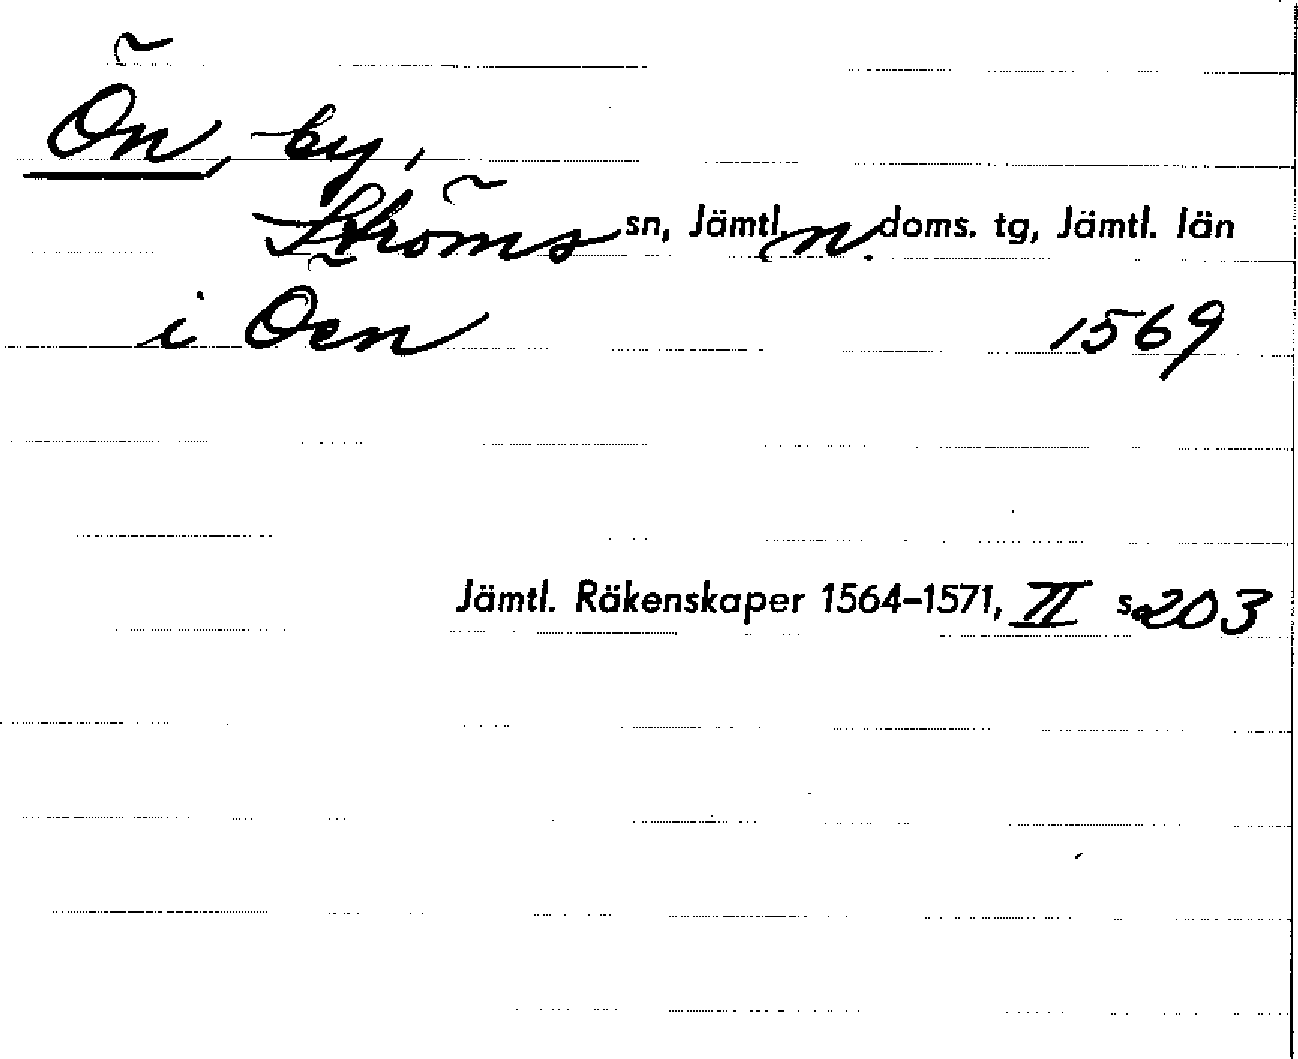 Ön, by,
Ströms sn, Jämtl. n. doms. tg, Jämtl. län
i Öen 1569
Jämtl. Räkenskaper 1564-1571, II s. 203